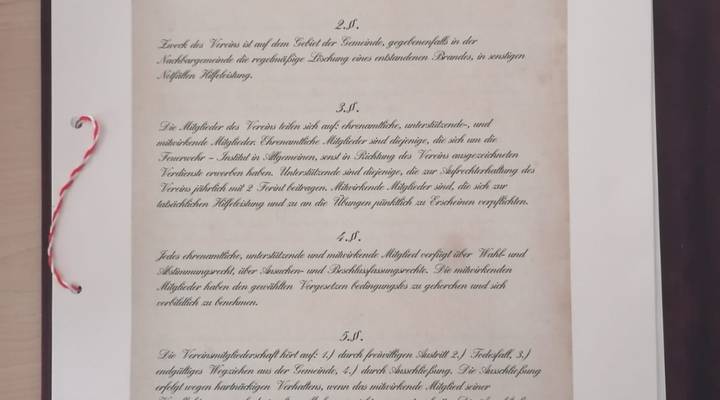 2.§.
Zweck des Vereins ist auf dem Gebiet der Gemeinde, gegebenenfalls in der
Nachbargemeinde die regelmäßige Löschung eines entstandenen Brandes, in senstigen
Notfällen Hilfeleistung.
3.§.
Die Mitglieder des Vereins teilen sich auf: ehrenamtliche, unterstützende-, und
mitwirkende Mitglieder. Ehrenamtliche Mitglieder sind diejenige, die sich um die
Feuerwehr – Institut in Allgemeinen, senst in Richtung des Vereins ausgezeichneten
Verdienste erworben haben. Unterstützende sind diejenige, die zur Aufrechterhaltung des
Vereins jährlich mit 2 Forint beitragen. Mitwirkende Mitglieder sind, die sich zur
tatsächlichen Hilfeleistung und zu an die Übungen pünktlich zu Erscheinen verpflichten.
4.§.
Jedes ehrenamtliche, unterstützende und mitwirkende Mitglied verfügt über Wahl- und
Abstimmungsrecht, über Ansuchen- und Beschlussfassungsrechte. Die mitwirkenden
Mitglieder haben den gewählten Vorgesetzen bedingungslos zu gehorchen und sich
vorbildlich zu benehmen.
5.§.
Die Vereinsmitgliederschaft hört auf: 1./ durch freiwilligen Austritt 2./ Todesfall, 3./
endgültiges Wegziehen aus der Gemeinde, 4./ durch Ausschließung. Die Ausschließung
erfolgt wegen hartnäckigen Verhaltens, wenn das mitwirkende Mitglied seiner